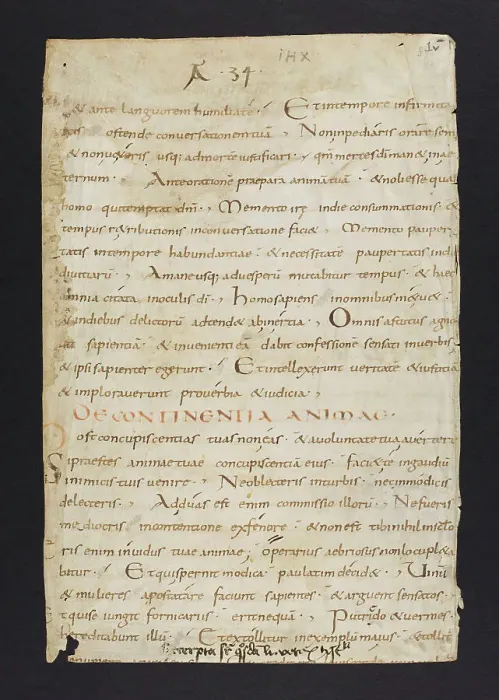 A. 34.
& ante languorem humilia te. Et in tempore infirmita
ostende conversationem tuā, Non impediaris orare sem
& non usq; ad morte iustificari. qm̄ merces dī man& in ae
ternum. Ante orationē praepara animā tuā. & noli esse qua
homo qui temptat dm̄. Memento irę in die consummationis. &
tempus r&ributionis in conversatione facię, Memento pauper
tatis in tempore habundantiae. & necessitatē paupertatis in di
divitiarū. A mane usq; ad vesperū mutabitur tempus. & haec
omnia citata in oculis dī. homo sapiens in omnibus m&u&.
& in diebus delictorū adtend& ab inertia, Omnis astutus agno
sapientiā. & invenienti eā dabit confessionē. sensati in verbis
& ipsi sapienter egerunt. Et intellexerunt veritatē & iustitiā
& imploraverunt proverbia & iudicia,
DE CONTINENTIA ANIMAE.
Post concupiscentias tuas non eas. & a voluntate tua avertere
Si praestes animae tuae concupiscentiā eius. faci& te in gaudiū
inimicis tuis venire. Ne oblecteris in turbis. nec inmodicis
delecteris. Adduas est enim commissio illorū, Ne fueris
mediocris in contentione ex fenore. & non est tibi nihil in sacclo
eris enim invidus tuae animae; operarius aebriosus non locupl&a
bitur. Et qui spernit modica. paulatim decid&. Vinū
& mulieres apostatare faciunt sapientes. & arguent sensatos.
& qui se iungit fornicariis erit nequā. Putrido & vermes
hereditabunt illū. Et extollitur in exemplū maius. & toll&